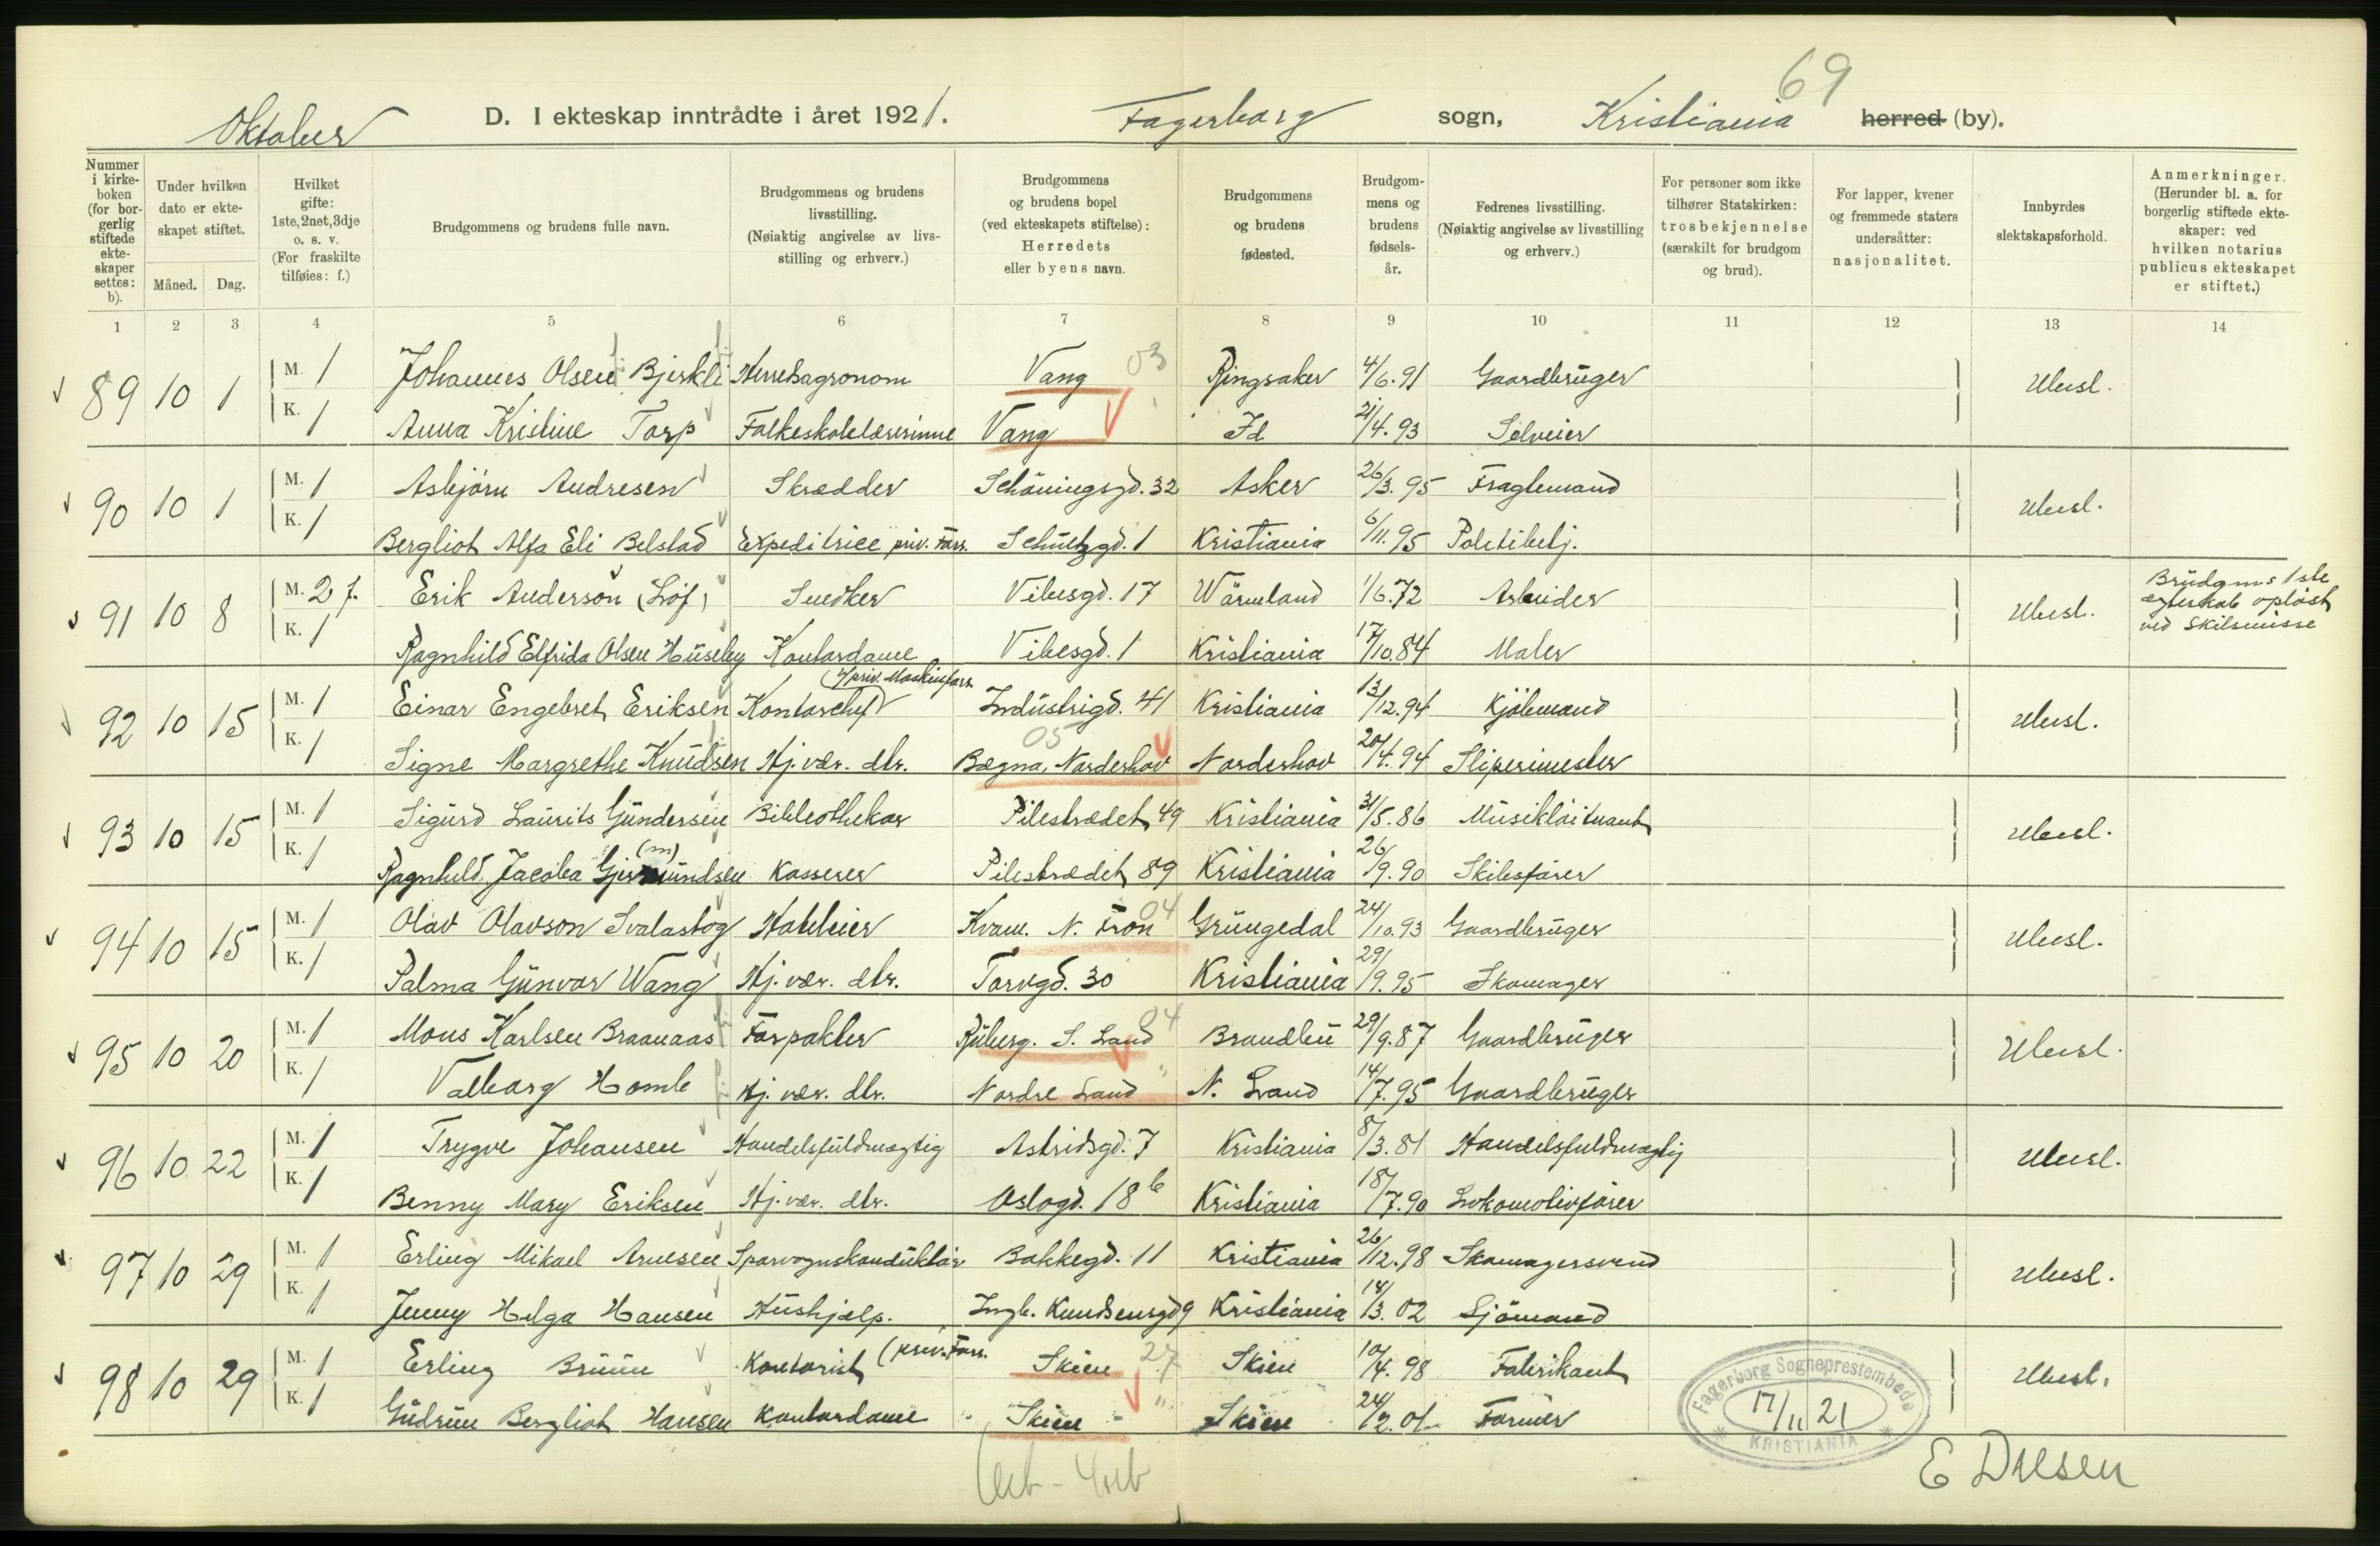 69
Oktober D. I ekteskap inntrådte i året 1921. Fagerborg sogn, Kristiania herred (by).
Nummer i kirke-boken (for bor-gerlig stiftede ekte-skaper settes: b).
Under hvilken dato er ekte-skapet stiftet.
Måned. Dag.
Hvilket gifte: 1ste, 2net, 3dje o. s. v. (For fraskilte tilføies: f.)
Brudgommens og brudens fulle navn.
Brudgommens og brudens livsstilling. (Nøiaktig angivelse av livs-stilling og erhverv.)
Brudgommens og brudens bopel (ved ekteskapets stiftelse): Herredets eller byens navn.
Brudgommens og brudens fødested.
Brudgom-mens og brudens fødsels-år.
Fedrenes livsstilling. (Nøiaktig angivelse av livsstilling og erhverv.)
For personer som ikke tilhører Statskirken: trosbekjennelse (særskilt for brudgom og brud).
For lapper, kvener og fremmede staters undersåtter: nasjonalitet.
Innbyrdes slektskapsforhold.
Anmerkninger. (Herunder bl. a. for borgerlig stiftede ekte-skaper: ved hvilken notarius publicus ekteskapet er stiftet.)
1 2 3 4 5 6 7 8 9 10 11 12 13 14
89 10 1 M. 1 Johannes Olsen Bjerkli Herredsagronom Vang 03 Ringsaker 4/6.91 Gaardbruger Ubesl.
K. 1 Anna Kristine Torp Folkeskolelærerinne Vang Id 21/4.93 Selveier
90 10 1 M. 1 Asbjörn Andresen Skrædder Schöningsgd. 32 Asker 26/3.95 Fragtemand Ubesl.
K. 1 Bergliot Alfa Eli Belstad Expeditrice priv. Forr. Schultzgd. 1 Kristiania 6/11.95 Politibetj.
91 10 8 M. 2 f. Erik Anderson (Löf) Snedker Vibesgd. 17 Wärmland 1/6.72 Arbeider Ubesl. Brudgms 1ste egteskab oplöst ved Skilsmisse
K. 1 Ragnhild Elfrida Olsen Huseby Kontordame Vibesgd. 1 Kristiania 17/10.84 Maler
92 10 15 M. 1 Einar Engebret Eriksen Kontorchef (i priv. Maskinforr. Industrigd. 41 Kristiania 13/12.94 Kjölemand Ubesl.
K. 1 Signe Margrethe Knudsen Hj. vær. dtr. 05 Bægna, Norderhov Norderhov 20/4.94 Sliperimester
93 10 15 M. 1 Sigurd Laurits Gundersen Bibliothekar Pilestrædet 49 Kristiania 31/5.86 Musiklöitnant Ubesl.
K. 1 Ragnhild Jacoba Gjermundsen (m) Kasserer Pilestrædet 89 Kristiania 26/9.90 Skibsförer
94 10 15 M. 1 Olav Olavson Svalastog Hotleier Kvam. N. Fron 04 Grungedal 24/10.93 Gaardbruger Ubesl.
K. 1 Palma Gunvor Wang Hj. vær. dtr. Torvgd. 30 Kristiania 29/9.95 Skomager
95 10 20 M. 1 Mons Karlsen Braanaas Forpakter Ryberg. S. Land 04 Brandbu 29/9.87 Gaardbruger Ubesl.
K. 1 Valborg Homb Hj. vær. dtr. Nordre Land " N. Land 14/7.95 Gaardbruger
96 10 22 M. 1 Trygve Johansen Handelsfuldmægtig Astridsgd. 7 Kristiania 8/3.81 Handelsfuldmægtig Ubesl.
K. 1 Benny Mary Eriksen Hj. vær. dtr. Oslogd. 18 b Kristiania 18/7.90 Lokomotivförer
97 10 29 M. 1 Erling Mikael Arnesen Sporvognskonduktör Bakkegd. 11 Kristiania 26/12.98 Skomagersvend Ubesl.
K. 1 Jenny Helga Hansen Hushjelp. Ingb. Knudsensgd 9 Kristiania 14/3.02 Sjömand
98 10 29 M. 1 Erling Bruun Kontorist (priv. Forr. Skien 27 Skien 10/4.98 Fabrikant Ubesl.
K. 1 Gudrun Bergliot Hansen Kontordame Skien " Skien 24/2.01 Former
Fagerborg Sogneprestembede
17/11 21
KRISTIANIA